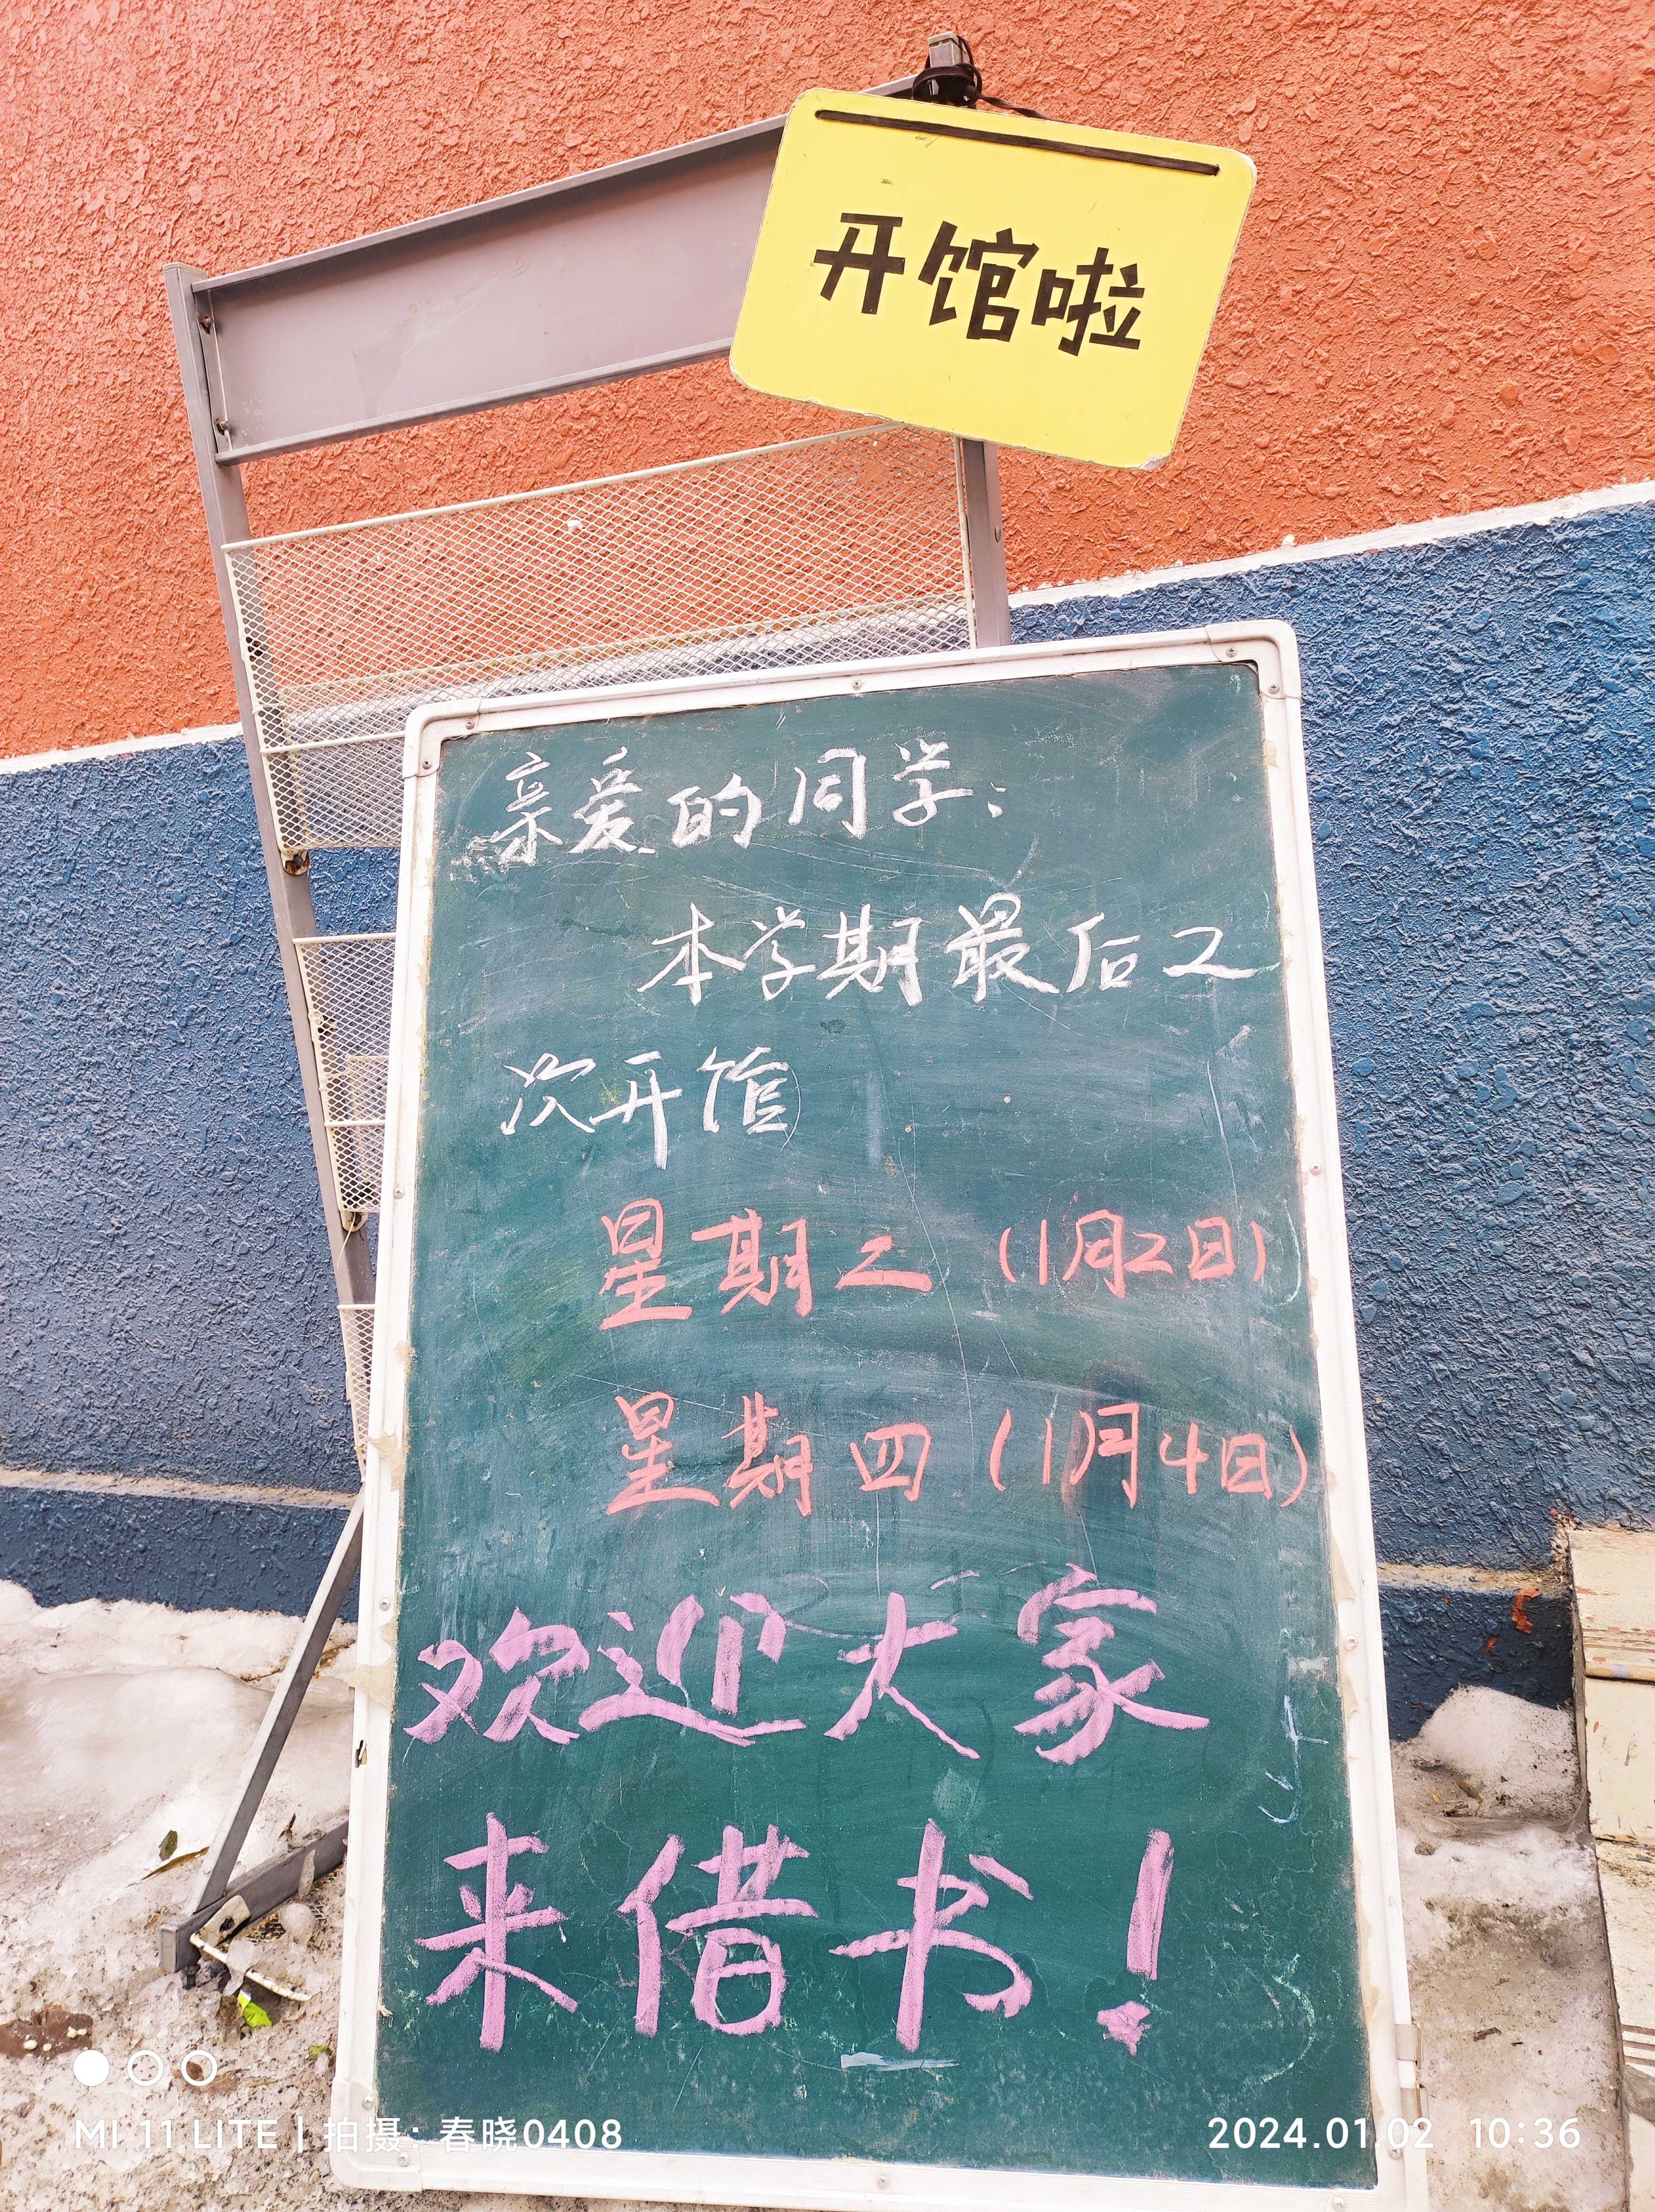 开馆啦
亲爱的同学：
本学期最后2
次开馆
星期二（1月2日）
星期四（1月4日）
欢迎大家
来借书！
MI 11 LITE | 拍摄：春晓0408
2024.01.02 10:36